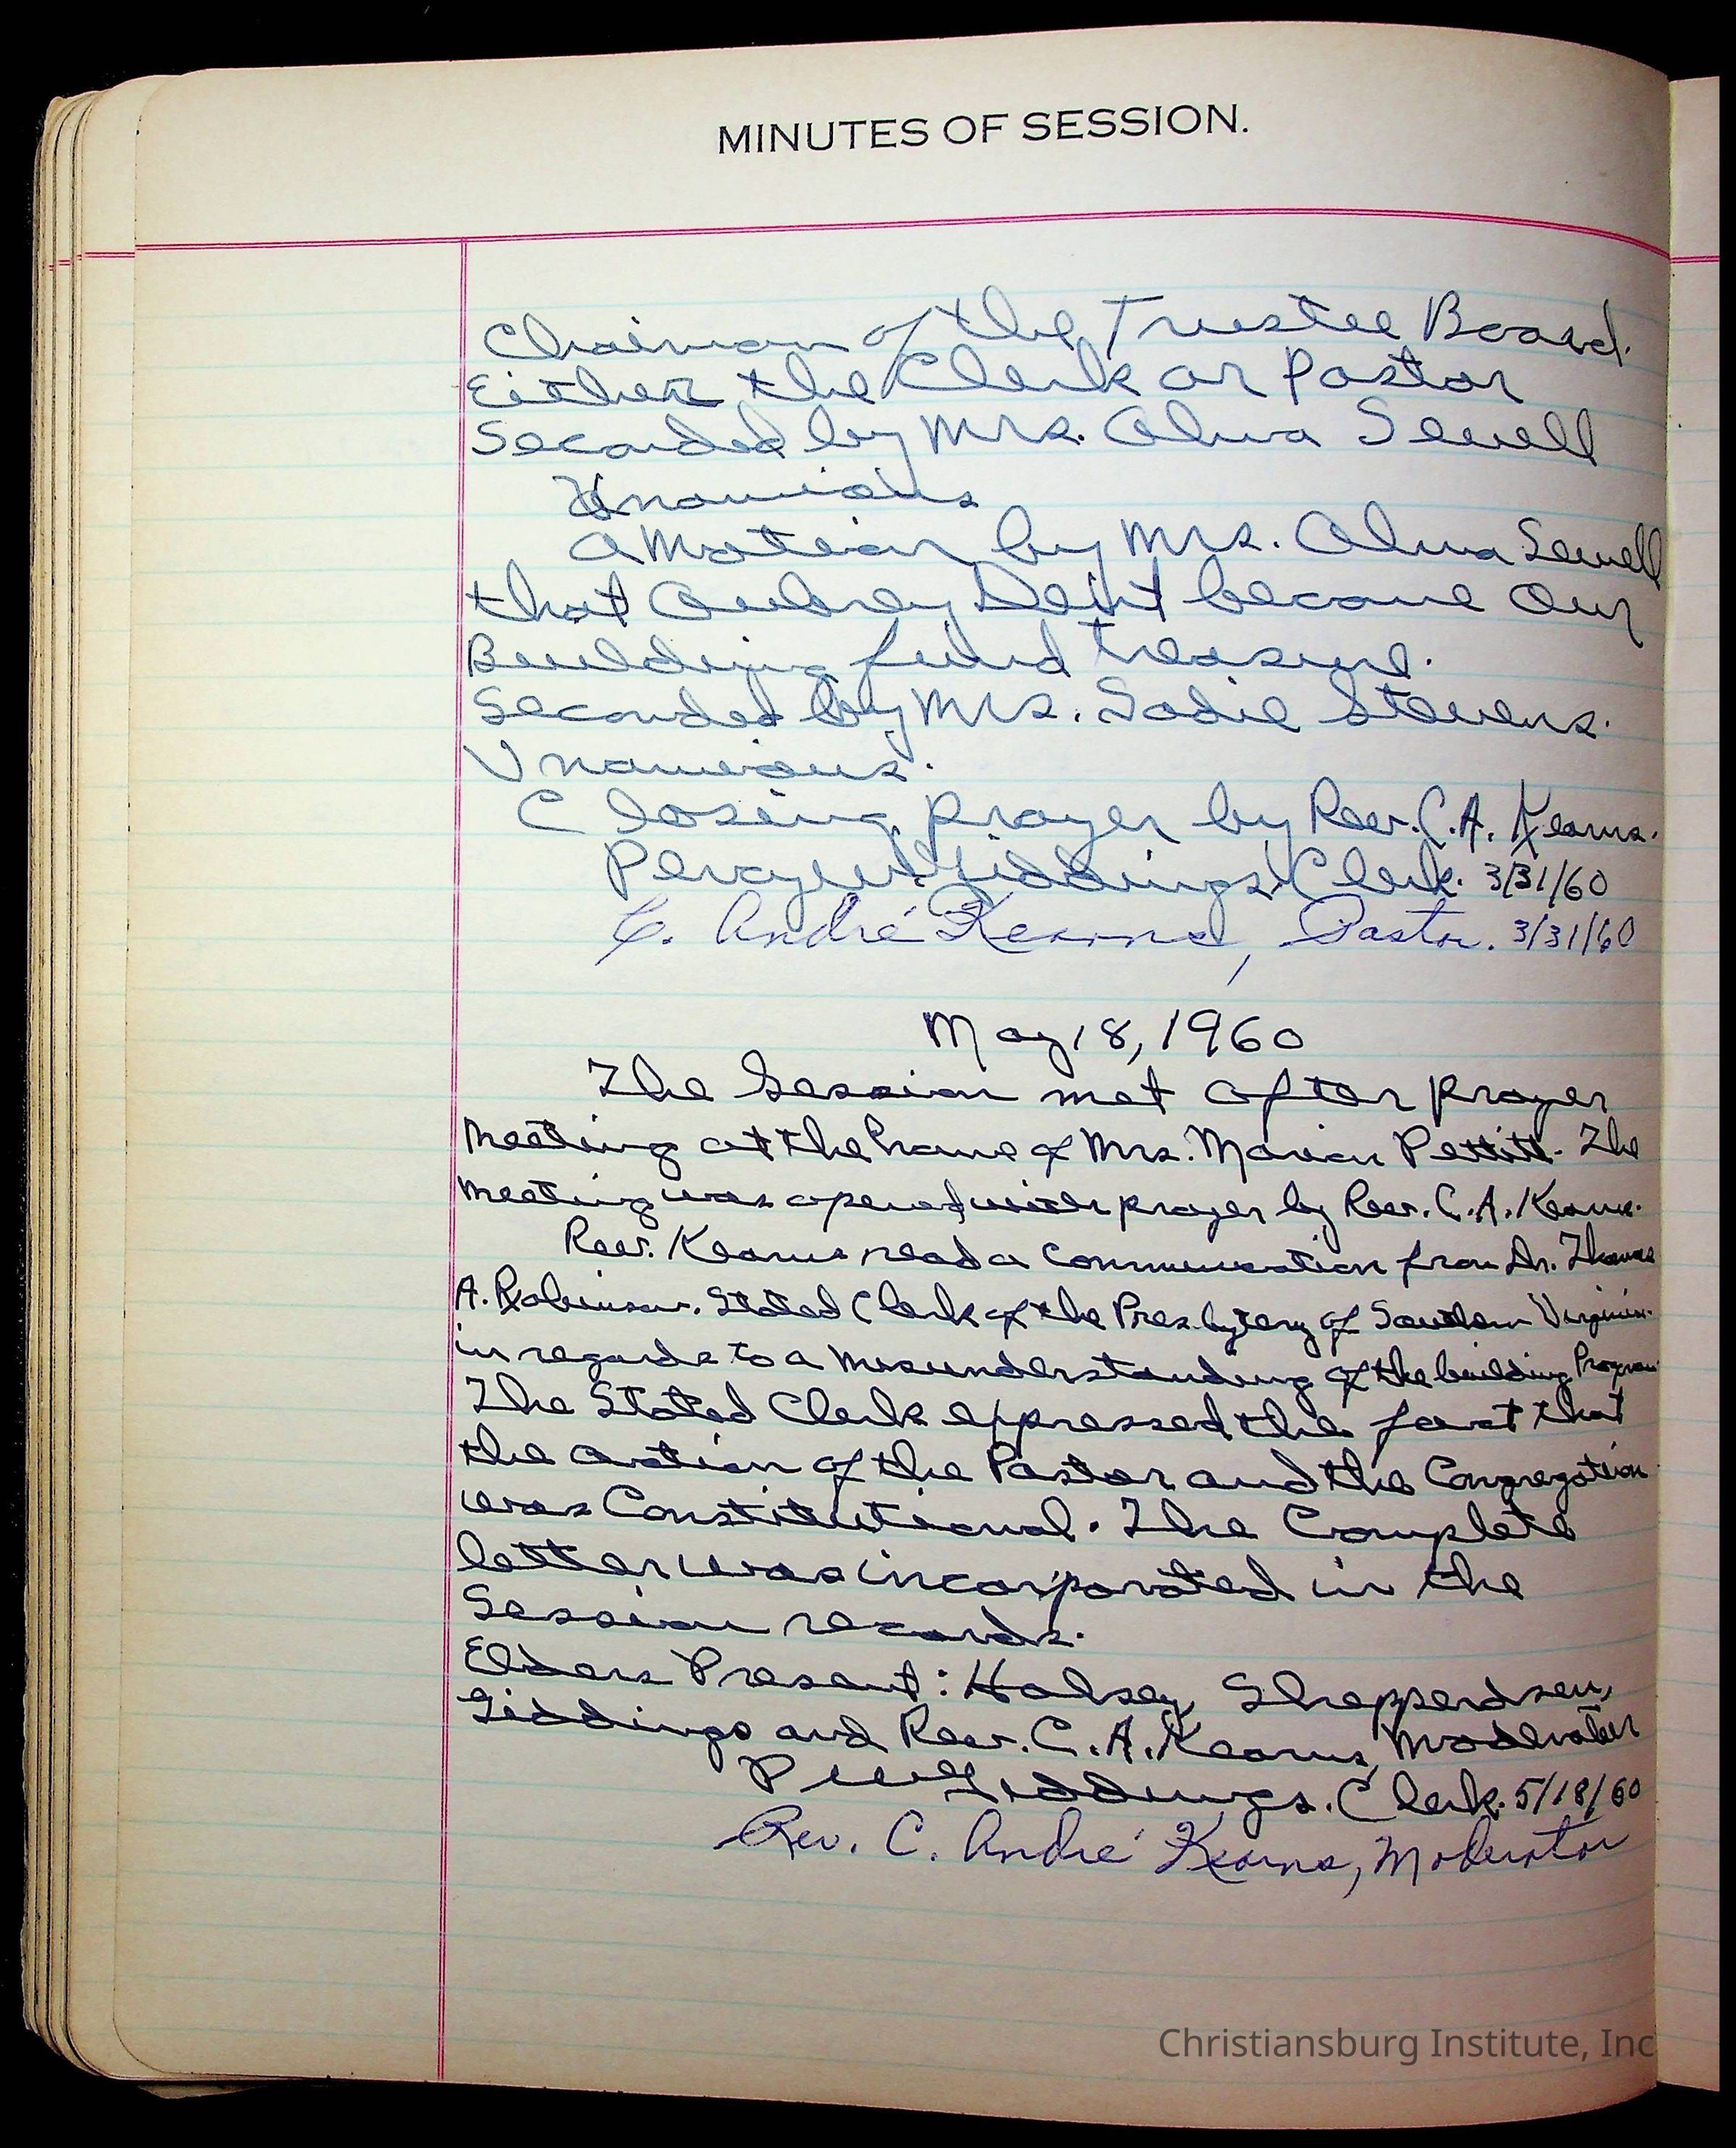 MINUTES OF SESSION.
Chairman of the Trustee Board.
Either the Clerk or Pastor
Seconded by Mrs. Alma Sewell
Unamious
A Motion by Mrs. Alma Sewell
that Aubrey Dent become our
Building fund treasure.
Seconded by Mrs. Sadie Stevens.
Unamious.
Closing prayer by Rev. C. A. Kearns.
Giddings. Clerk. 3/31/60
C. André Kearns, Pastor. 3/31/60
May 18, 1960
The Session met after prayer
meeting at the home of Mrs. Marian Pettitt. The
meeting was opened with prayer by Rev. C. A. Kearns.
Rev. Kearns read a Communication from Dr. Thomas
A. Robinson. Stated Clerk of the Presbytery of Southern Virginia.
in regards to a misunderstanding of the building Program
The Stated Clerk expressed the fact that
the action of the Pastor and the Congregation
was Constitutional. The Complete
letter was incorporated in the
Session records.
Elders Present: Halsey, Shepperdson,
Giddings and Rev. C. A. Kearns, Moderator
P W Giddings. Clerk. 5/18/60
Rev. C. André Kearns, Moderator
Christiansburg Institute, Inc